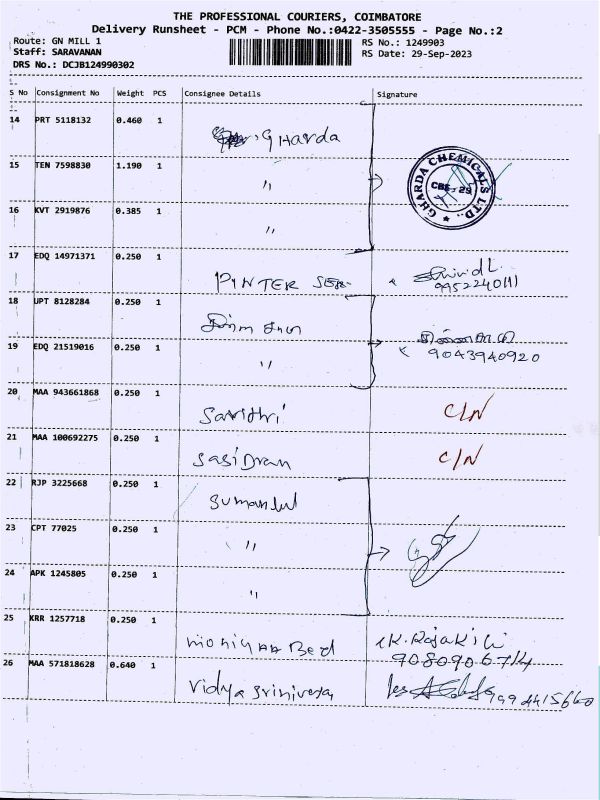 THE PROFESSIONAL COURIERS, COIMBATORE
Delivery Runsheet - PCM - Phone No.:0422-3505555 - Page No.:2
Route: GN MILL 1 RS No.: 1249903
Staff: SARAVANAN RS Date: 29-Sep-2023
DRS No.: DCJB124990302
S No Consignment No Weight PCS Consignee Details Signature
14 PRT 5118132 0.460 1 GHarda
15 TEN 7598830 1.190 1 "
GHARDA CHEMICALS LTD.,
CBE - 29
16 KVT 2919876 0.385 1 "
17 EDQ 14971371 0.250 1 PINTER
9952240111
18 UPT 8128284 0.250 1
19 EDQ 21519016 0.250 1 "
9043940920
20 MAA 943661868 0.250 1 Savithri C/N
21 MAA 100692275 0.250 1 SasiDran C/N
22 RJP 3225668 0.250 1
23 CPT 77025 0.250 1 "
24 APK 1245805 0.250 1 "
25 KRR 1257718 0.250 1 K.Rajakili
9080906714
26 MAA 571818628 0.640 1 Vidya Srinivasa 9994415660